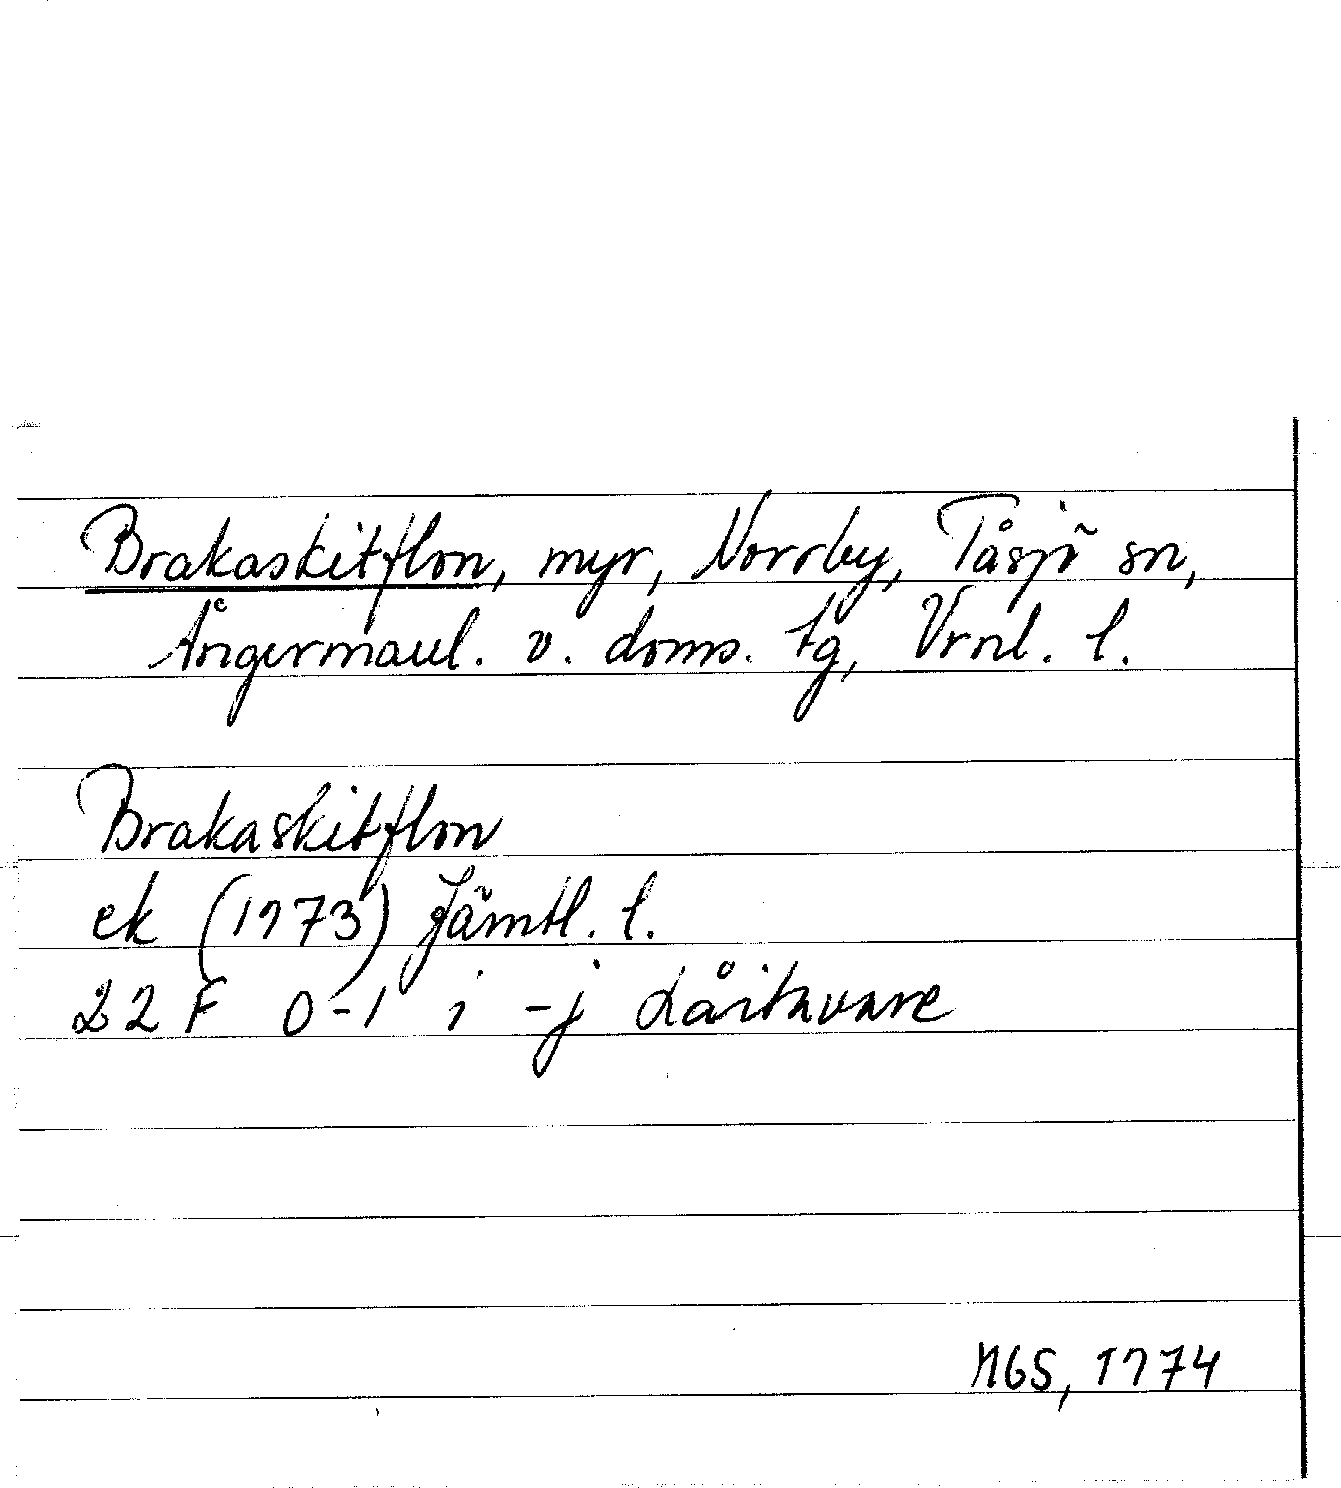 Brakaskitflon, myr, Norrby, Tåsjö sn,
Ångermanl. v. doms. tg, Vrnl. l.
Brakaskitflon
ek (1973) Jämtl. l.
22 F 0-1 i - j Låitavare
MGS, 1974